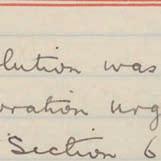 olution was
oration urg
Section 6